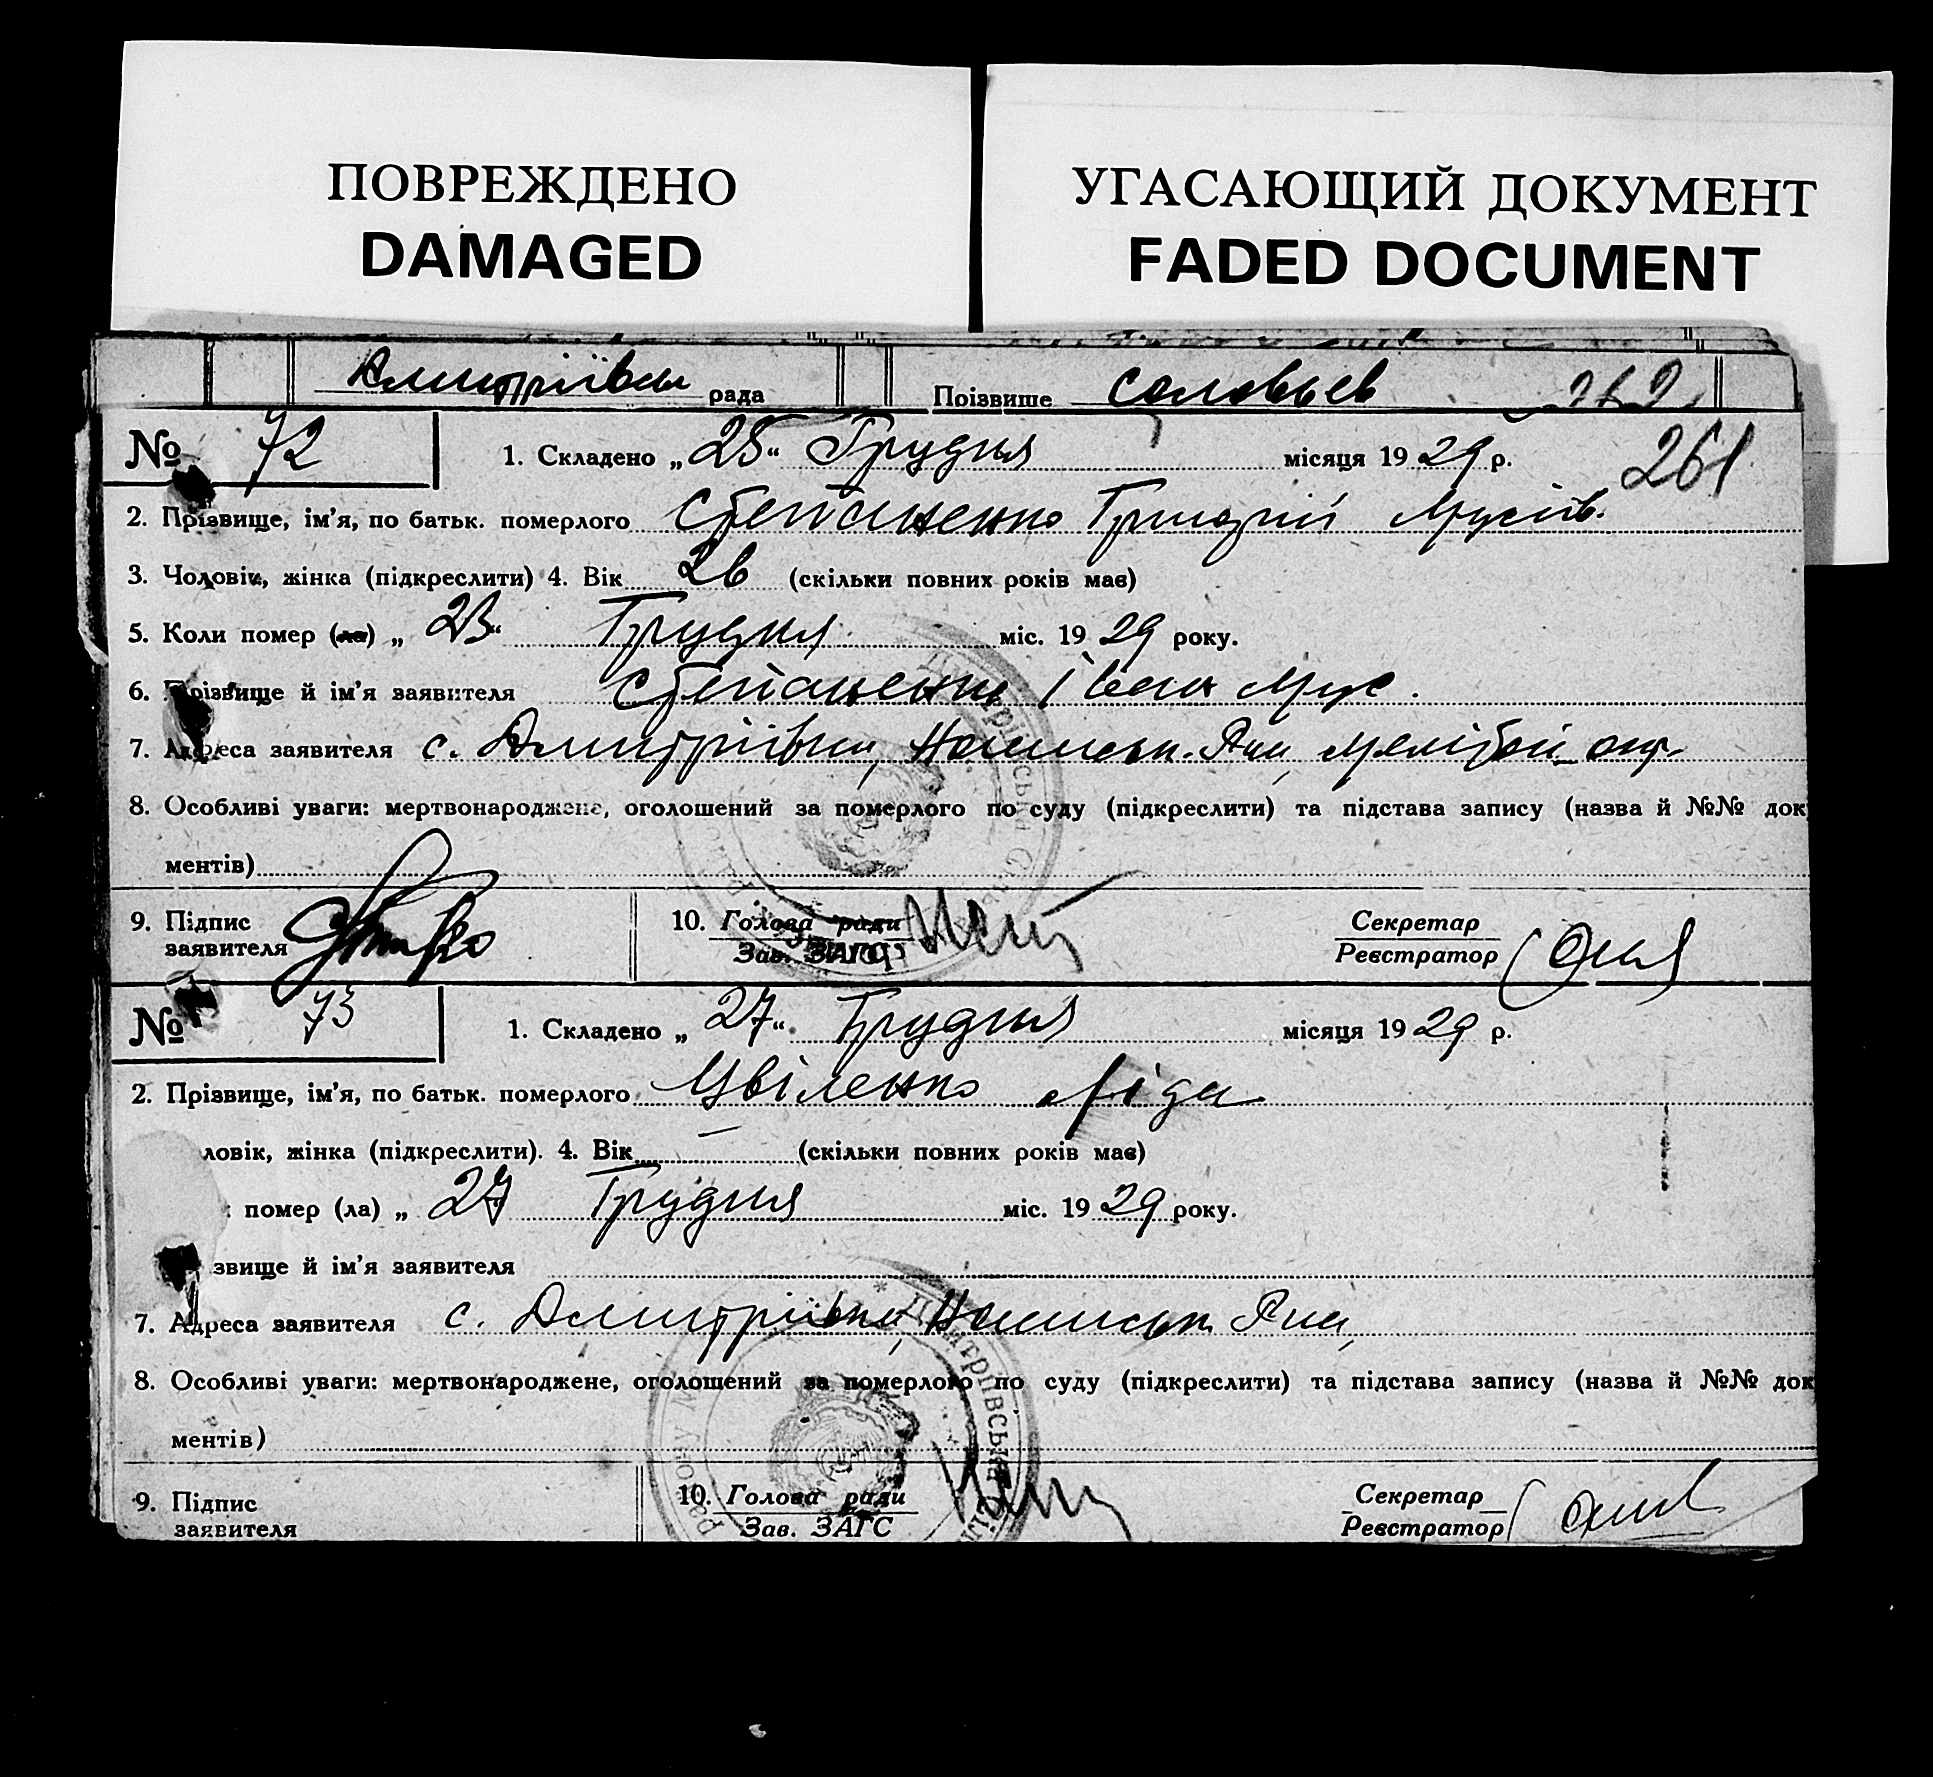 ПОВРЕЖДЕНО
DAMAGED
УГАСАЮЩИЙ ДОКУМЕНТ
FADED DOCUMENT
Дмитріївськ рада Поізвише Соловьев 262
261
№ 72 1. Складено „25“ Грудня місяця 1929 р.
2. Прізвище, ім'я, по батьк. померлого Степаненко Григорій Мусіїв.
3. Чоловік, жінка (підкреслити) 4. Вік 26 (скільки повних років має)
5. Коли помер (ла) „23“ Грудня міс. 1929 року.
6. Прізвище й ім'я заявителя Степаненко Іван Мус.
7. Адреса заявителя с. Дмитріївка, р-на, Меліт. окр.
8. Особливі уваги: мертвонароджене, оголошений за померлого по суду (підкреслити) та підстава запису (назва й №№ доку
ментів)
9. Підпис
заявителя
10. Голова ради
Зав. ЗАГС
Секретар
Реєстратор
№ 73 1. Складено „27“ Грудня місяця 1929 р.
2. Прізвище, ім'я, по батьк. померлого Цвіленко Ліда
ловік, жінка (підкреслити). 4. Вік — (скільки повних років має)
помер (ла) „27 Грудня міс. 1929 року.
звище й ім'я заявителя
7. Адреса заявителя с. Дмитріївка, р-на,
8. Особливі уваги: мертвонароджене, оголошений за померлого по суду (підкреслити) та підстава запису (назва й №№ док
ментів)
9. Підпис
заявителя
10. Голова ради
Зав. ЗАГС
Секретар
Реєстратор